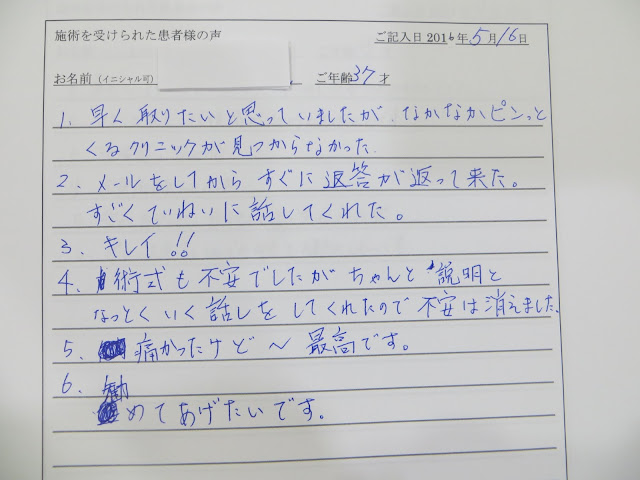 施術を受けられた患者様の声 ご記入日 2016年5月16日
お名前（イニシャル可） ご年齢37才
1. 早く取りたいと思っていましたが、なかなかピンっと
くるクリニックが見つからなかった.
2. メールをしてからすぐに返答が返って来た。
すごくていねいに話してくれた。
3. キレイ!!
4. 術式も不安でしたがちゃんと説明と
なっとくいく話しをしてくれたので不安は消えました.
5. 痛かったけど～最高です。
6. 勧
めてあげたいです。